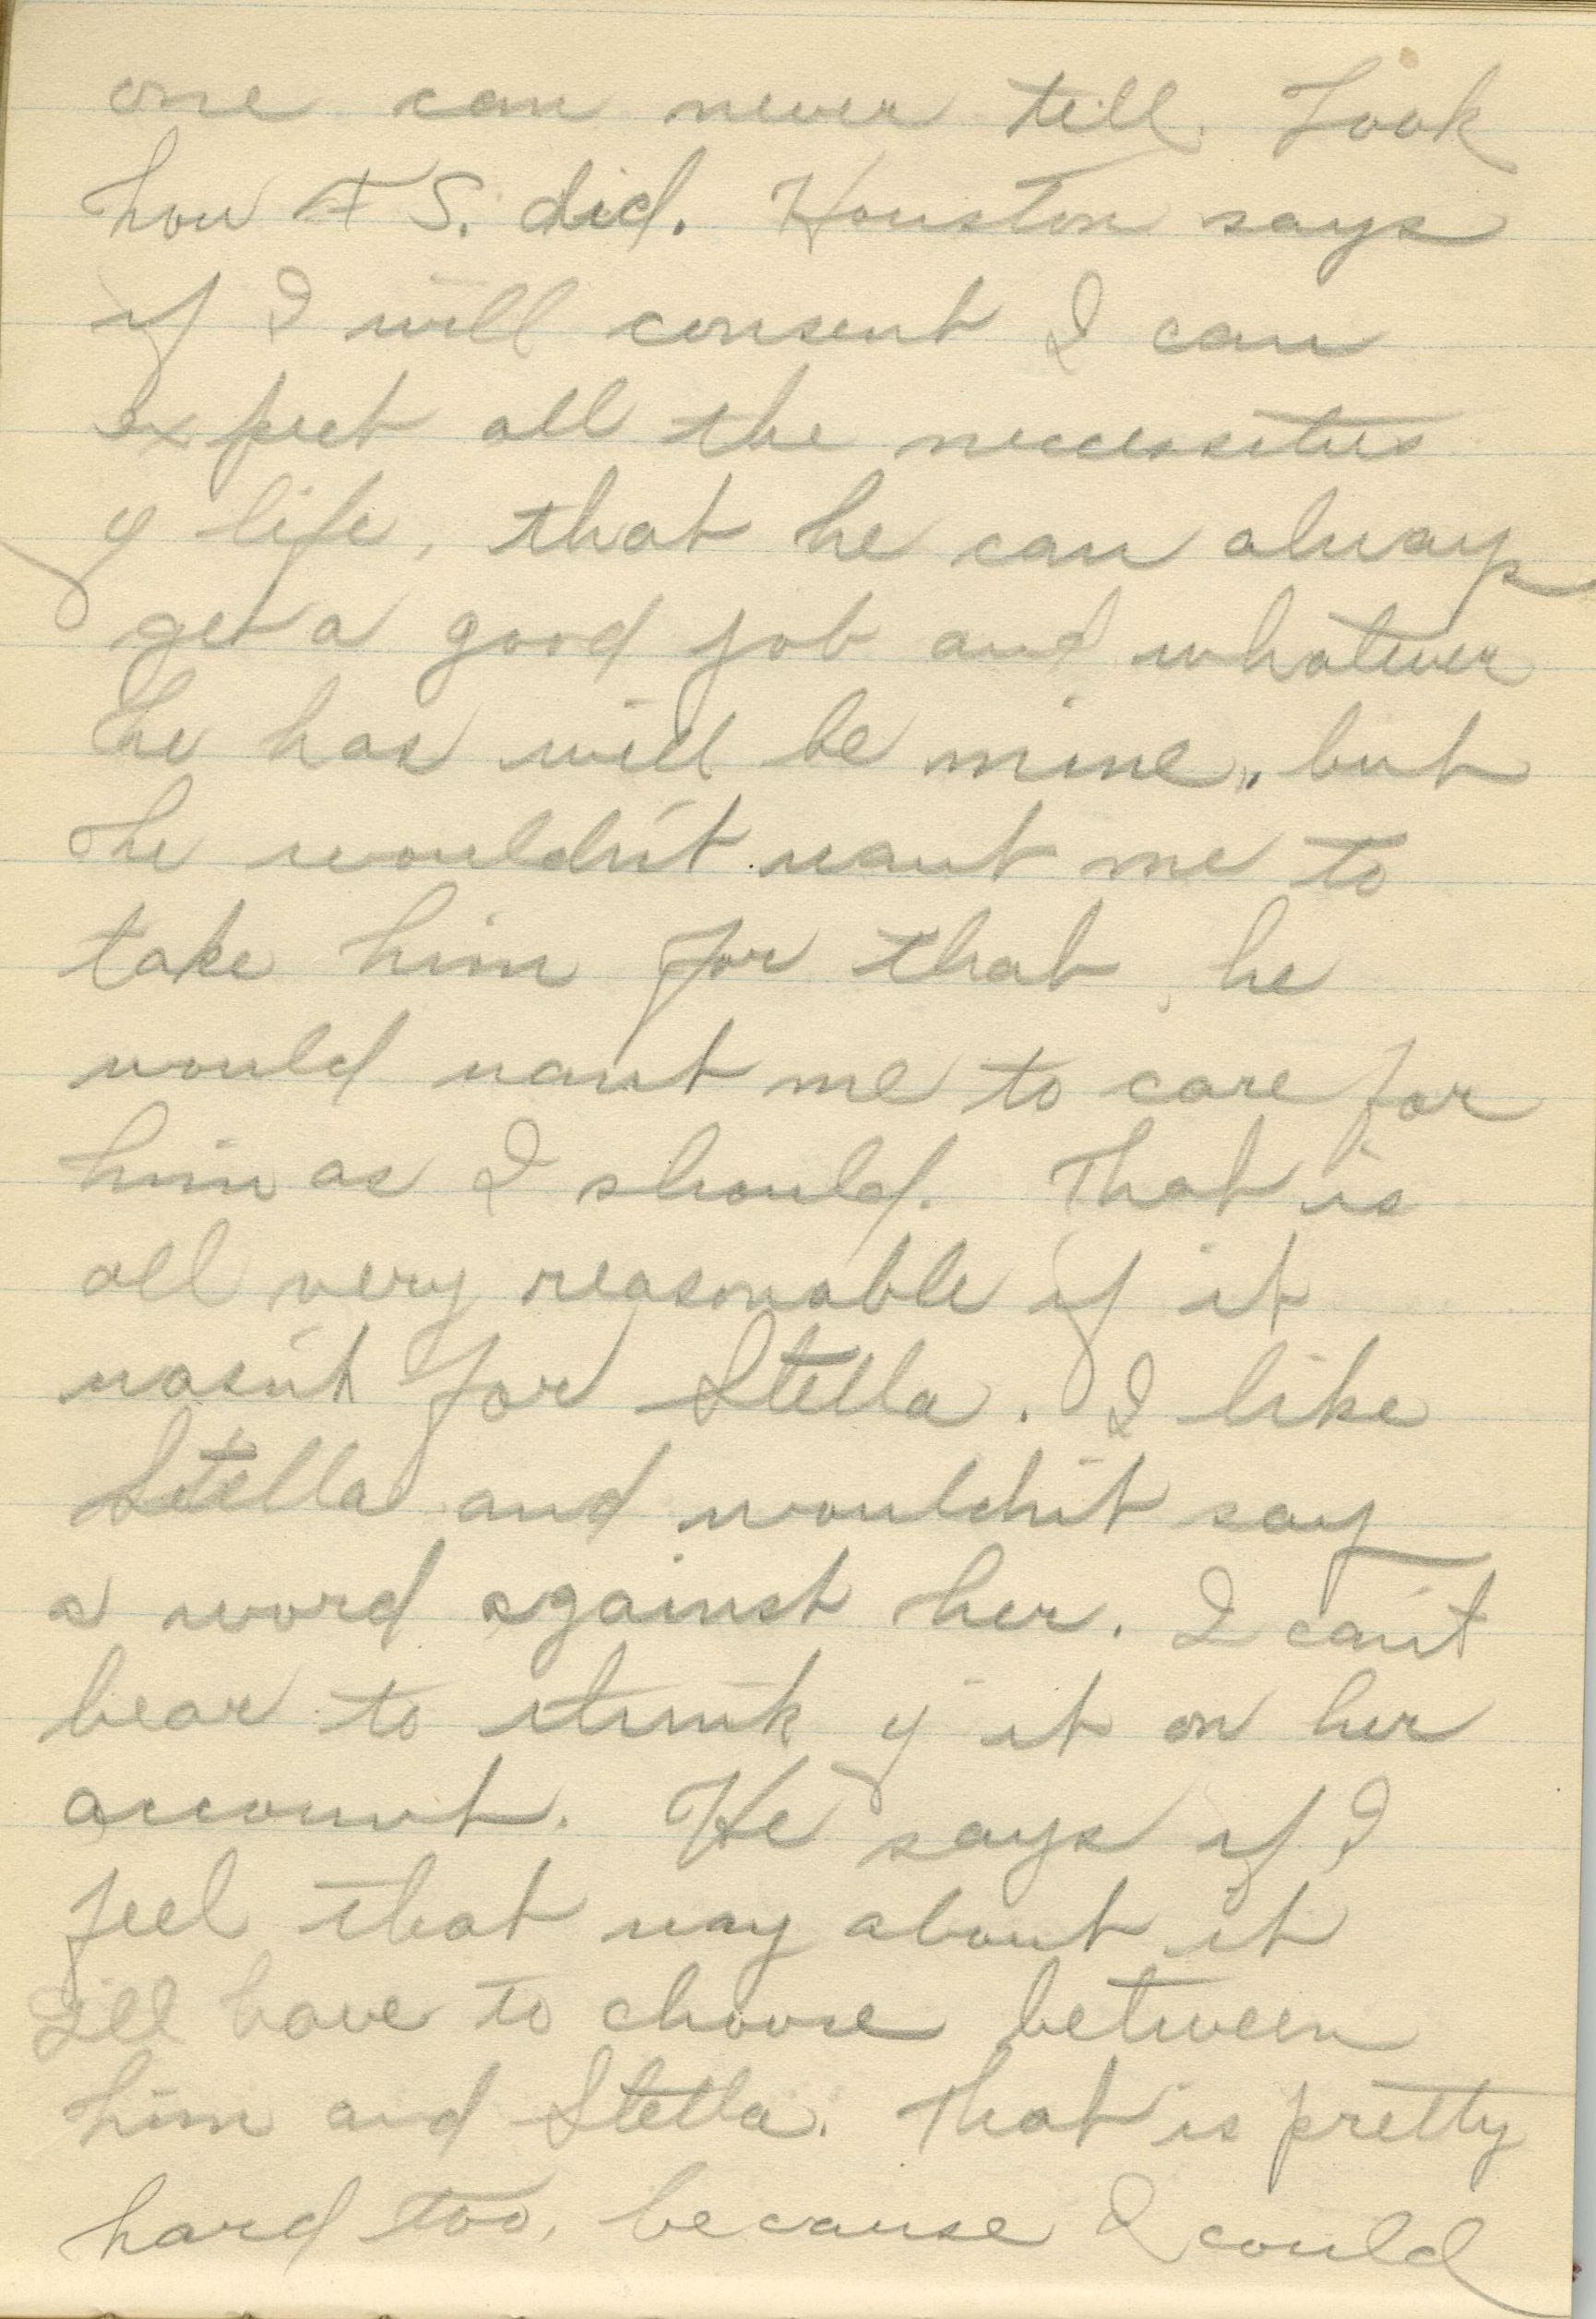 one can never tell. Look
how F S. did. Houston says
if I will consent I can
expect all the neccessities
of life, that he can always
get a good job and whatever
he has will be mine, but
he wouldn't want me to
take him for that, he
would want me to care for
him as I should. That is
all very reasonable if it
wasn't for Stella. I like
Stella and wouldn't say
a word against her. I can't
bear to think of it on her
account. He says if I
feel that way about it
I'll have to choose between
him and Stella. That is pretty
hard too, because I could